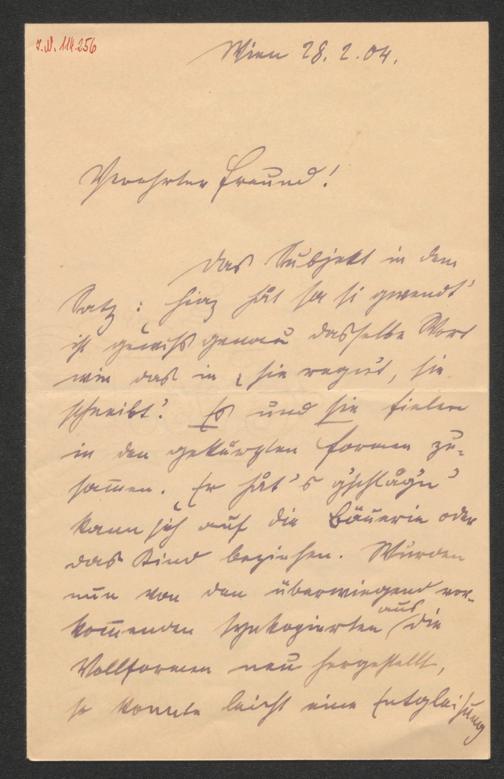 I.N. 114.256
Wien 28.2.04.
Verehrter Freund!
Das Subjekt in dem
Satz: hiaz håt sa si gwendt'
ist gewiss genau dasselbe Wort
wie das in sie regnt, sie
schneibt'. Es und sie fielen
in den gekürzten Formen zu-
sammen. Er håt's g'schlåg'n'
kann sich auf die Bäuerin oder
das Kind beziehen. Wurden
nun von den überwiegend vor-
kommenden synkopierten aus die
Vollformen neu hergestellt,
so konnte leicht eine Entgleisung